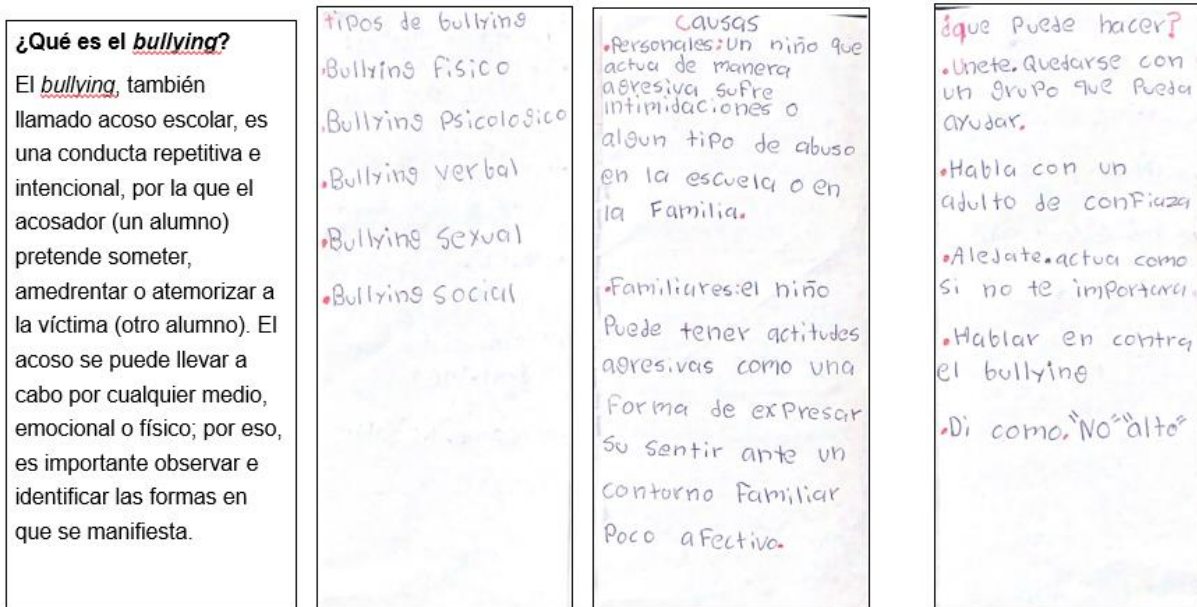 ¿Qué es el bullying?
El bullying, también
llamado acoso escolar, es
una conducta repetitiva e
intencional, por la que el
acosador (un alumno)
pretende someter,
amedrentar o atemorizar a
la víctima (otro alumno). El
acoso se puede llevar a
cabo por cualquier medio,
emocional o físico; por eso,
es importante observar e
identificar las formas en
que se manifiesta.
tipos de bullying
•Bullying Fisico
•Bullying Psicologico
•Bullying verbal
•Bullying sexual
•Bullying social
Causas
•Personales: un niño que
actua de manera
agresiva sufre
intimidaciones o
algun tipo de abuso
en la escuela o en
la Familia.
•Familiares: el niño
Puede tener actitudes
agresivas como una
Forma de expresar
su sentir ante un
contorno Familiar
Poco afectivo.
¿que Puede hacer?
•Unete. Quedarse con
un grupo que Pueda
ayudar.
•Habla con un
adulto de confiaza
•Alejate. actua como
si no te importara.
•Hablar en contra
el bullying
•Di como. "No" "alto"